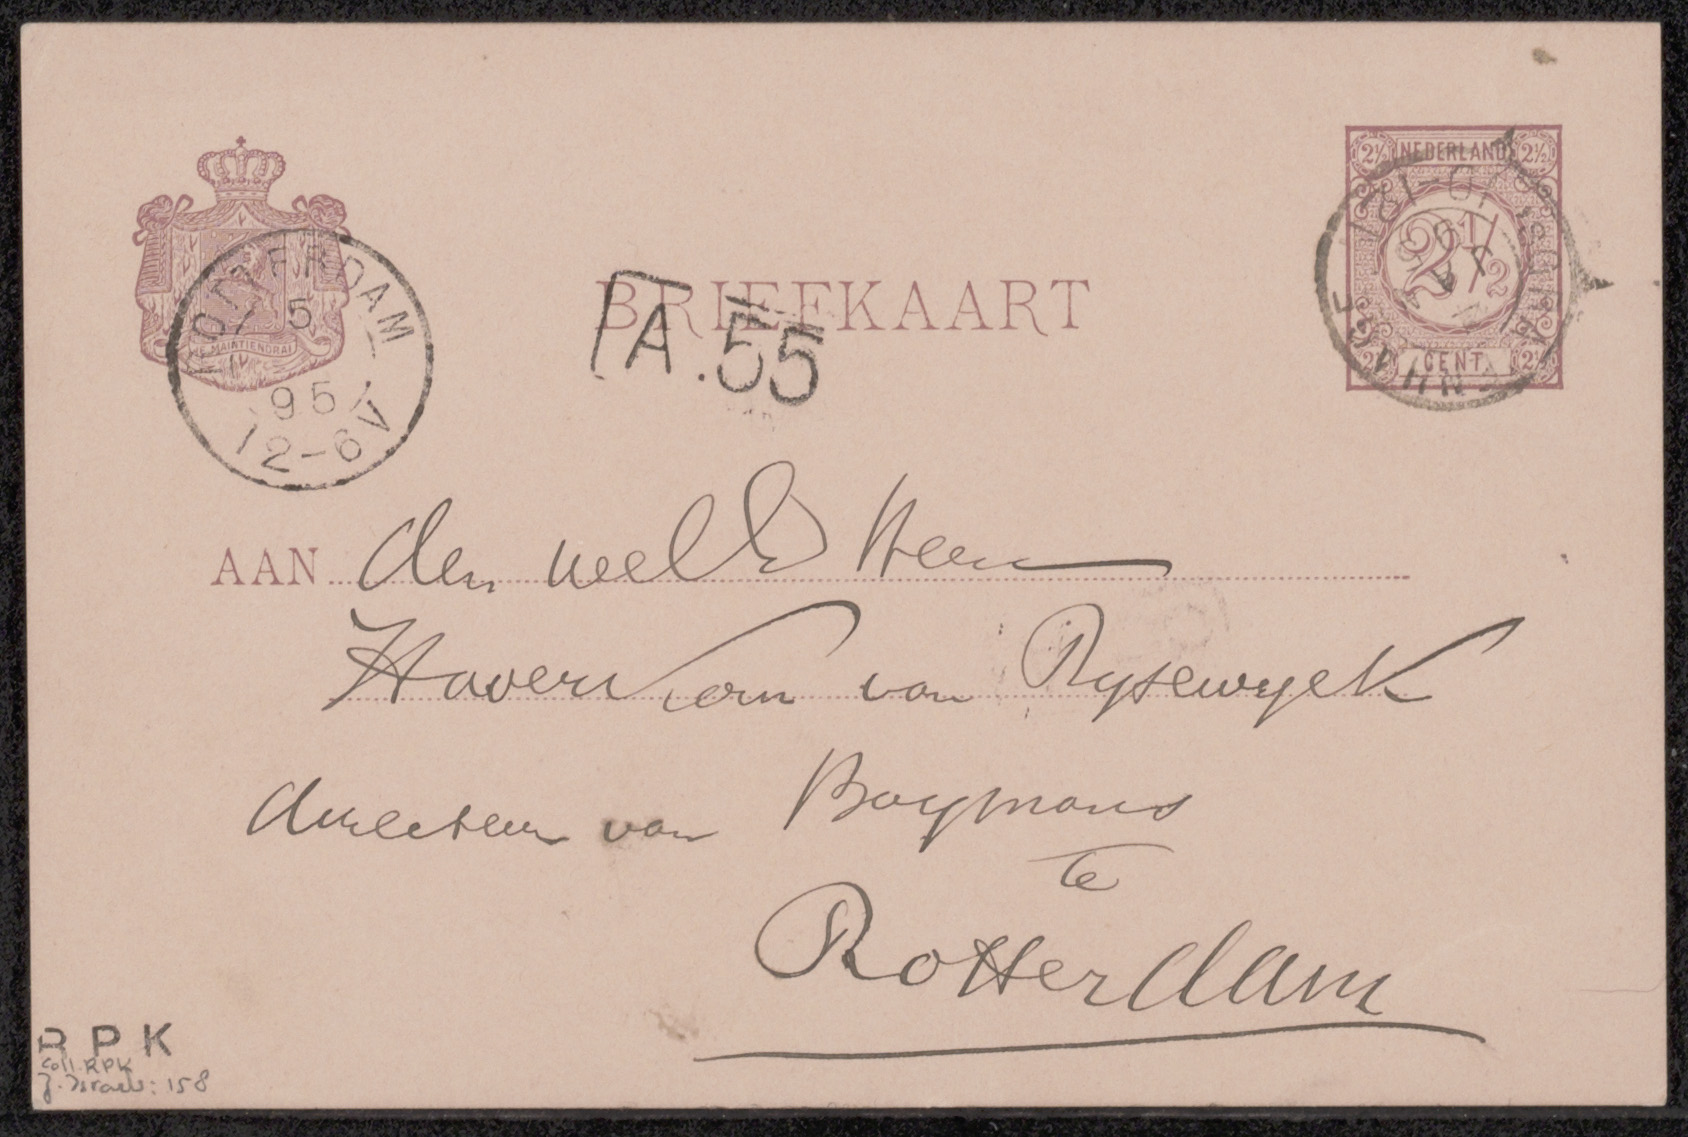 2½ NEDERLAND 2½
2½
CENT
'S GRAVENHAGE
10-12
JE MAINTIENDRAI
ROTTERDAM
5
95
12-6V
BRIEFKAART
A.55
AAN den Wel Ed Heer
Haverkorn van Rysewyck
directeur van Boymans
te
Rotterdam
RPK
Coll. RPK
J. Israels: 158